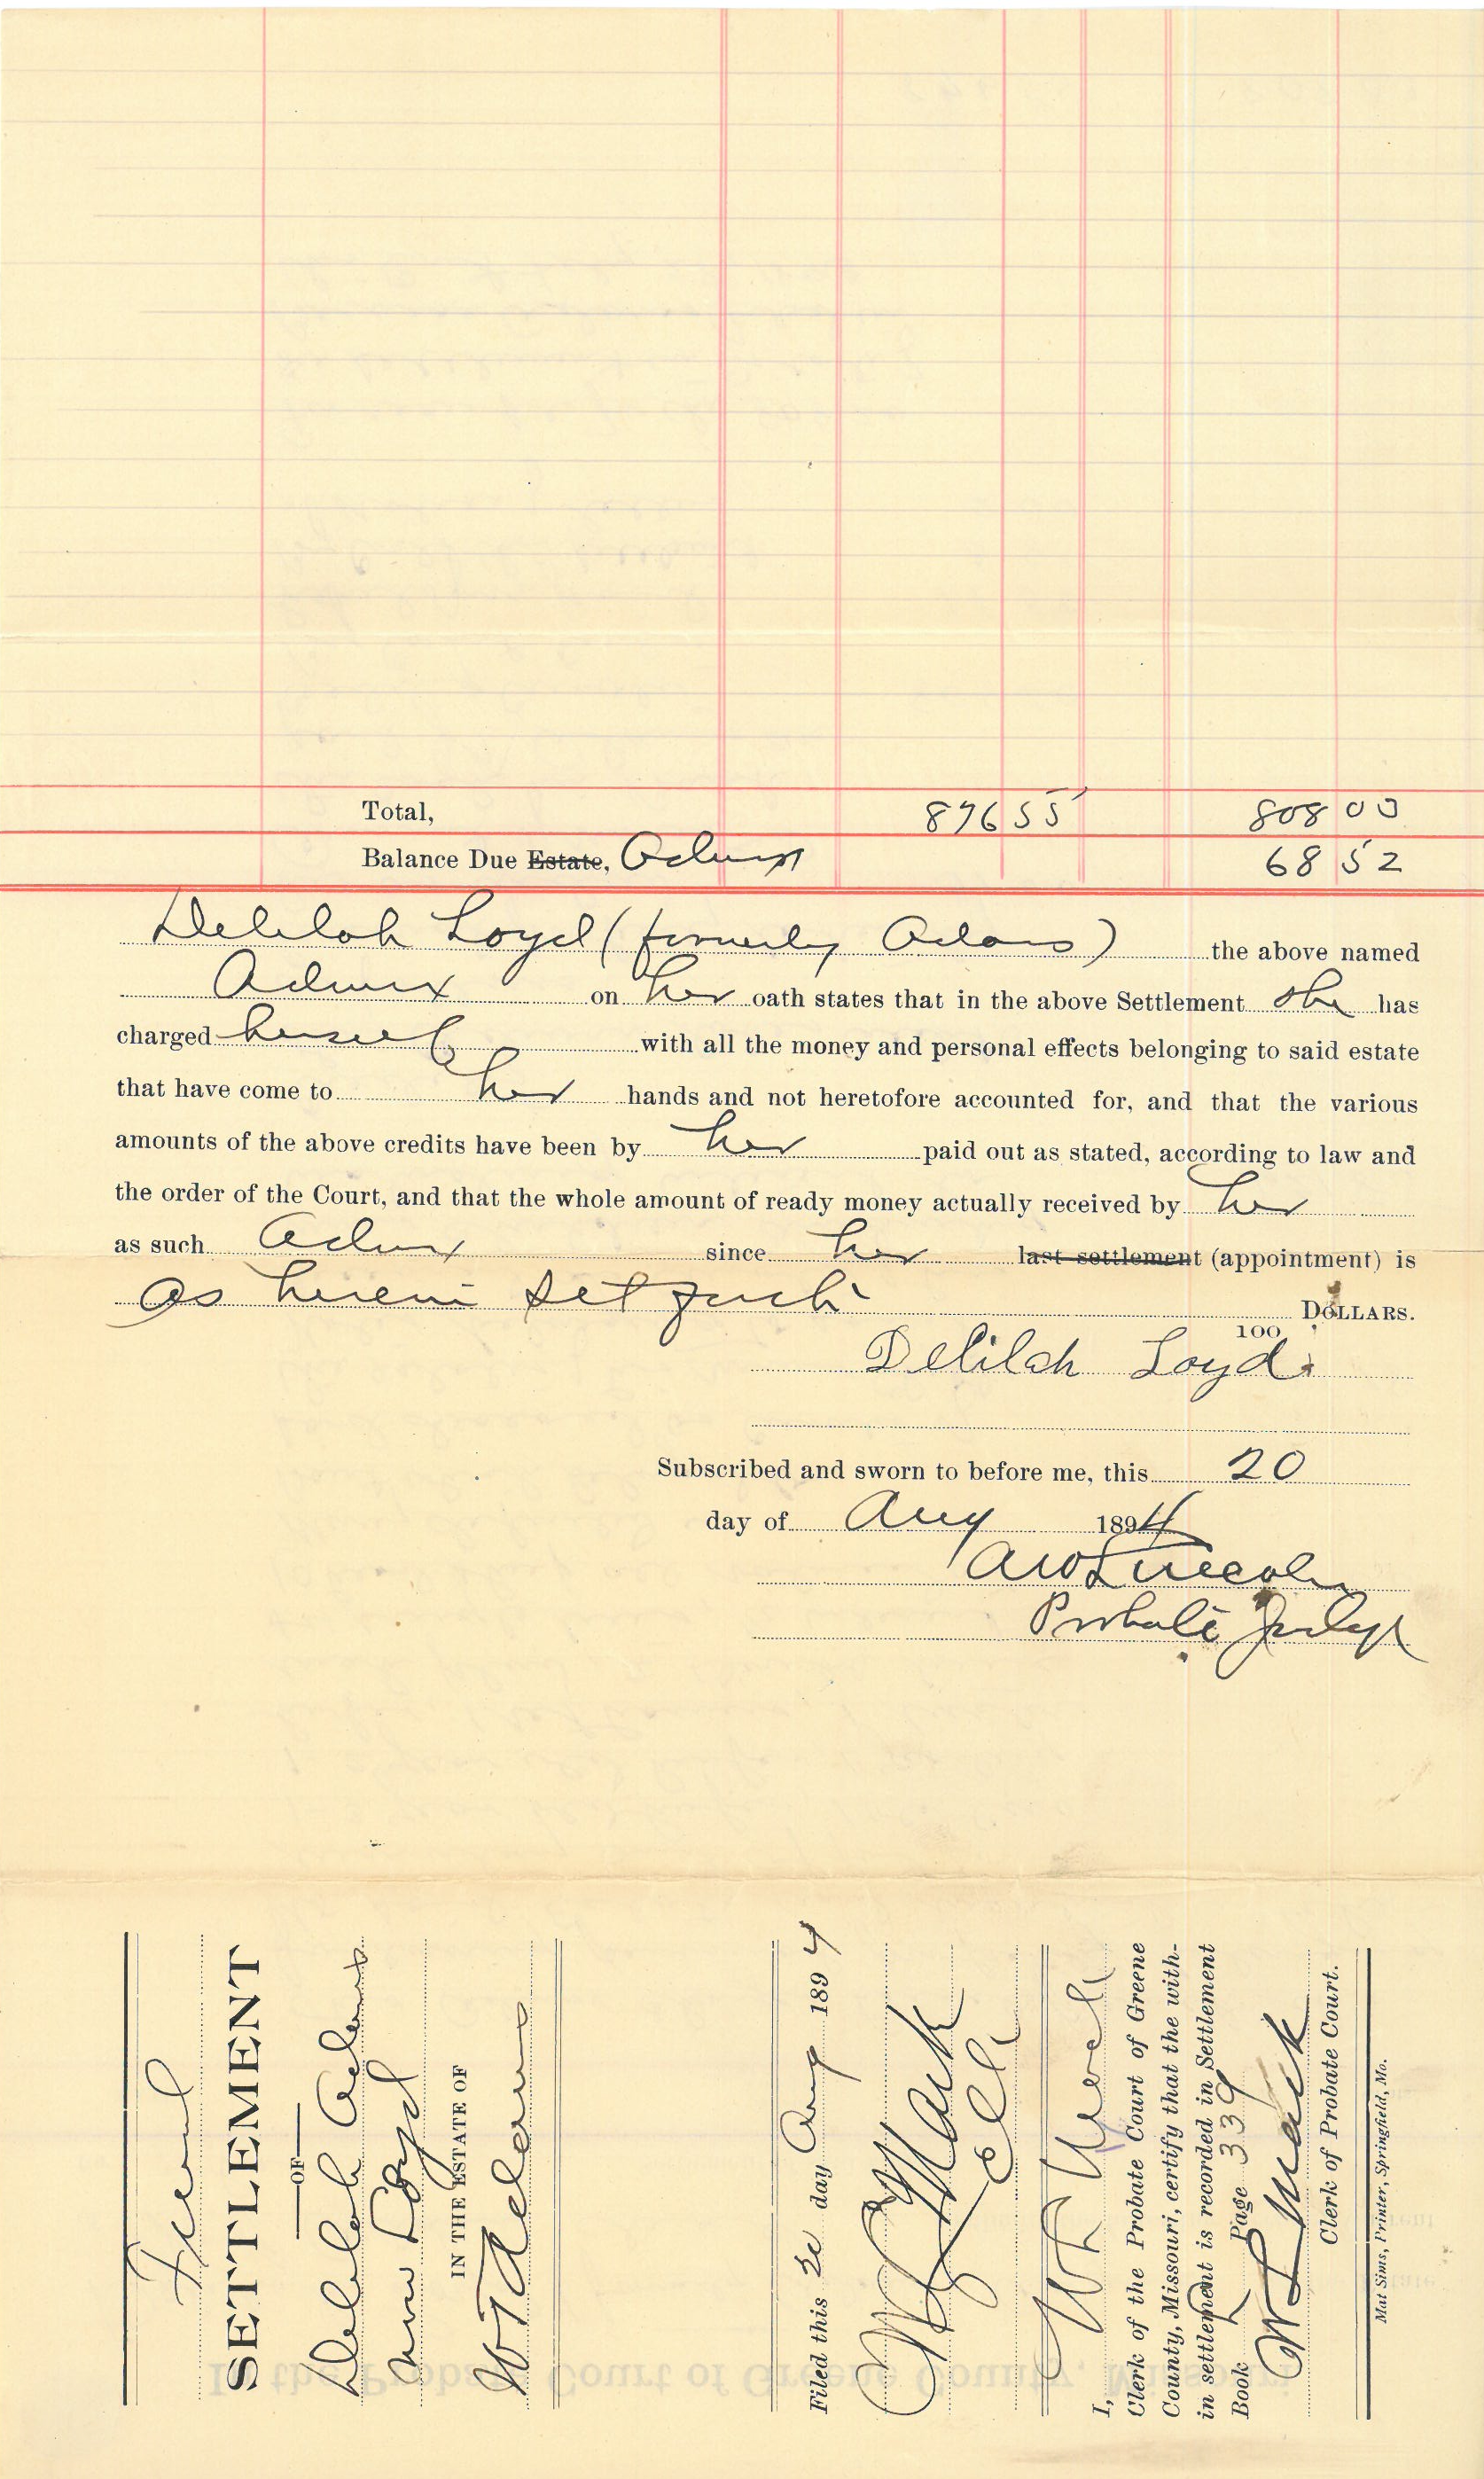 Total, 876 55 808 03
Balance Due Estate, Admx 68 52
Delilah Loyd (formerly Adams) the above named
Admx on her oath states that in the above Settlement she has
charged herself with all the money and personal effects belonging to said estate
that have come to her hands and not heretofore accounted for, and that the various
amounts of the above credits have been by her paid out as stated, according to law and
the order of the Court, and that the whole amount of ready money actually received by her
as such Admx since her last settlement (appointment) is
as herein set forth DOLLARS.
100
Delilah Loyd.
Subscribed and sworn to before me, this 20
day of Aug 1894
AW Lincoln
Probate Judge
Final
SETTLEMENT
OF
Delilah Adams
now Loyd
IN THE ESTATE OF
W T Adams
Filed this 20 day Aug 1894
Mack
Clk
I,
Clerk of the Probate Court of Greene
County, Missouri, certify that the with-
in settlement is recorded in Settlement
Book Page 339
Mack
Clerk of Probate Court.
Mat Sims, Printer, Springfield, Mo.
In the Probate Court of Greene County, Missouri